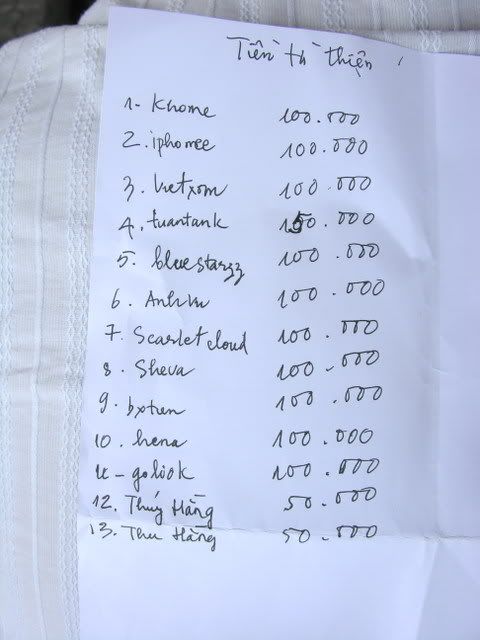 Tiền từ thiện
1- Khome 100.000
2. iphomee 100.000
3. Vietxom 100.000
4. tuantank 150.000
5. bluestarzz 100.000
6. Anhvu 100.000
7. Scarlet cloud 100.000
8. Sheva 100.000
9. bxtien 100.000
10. hena 100.000
11- goliok 100.000
12. Thúy Hằng 50.000
13. Thu Hằng 50.000